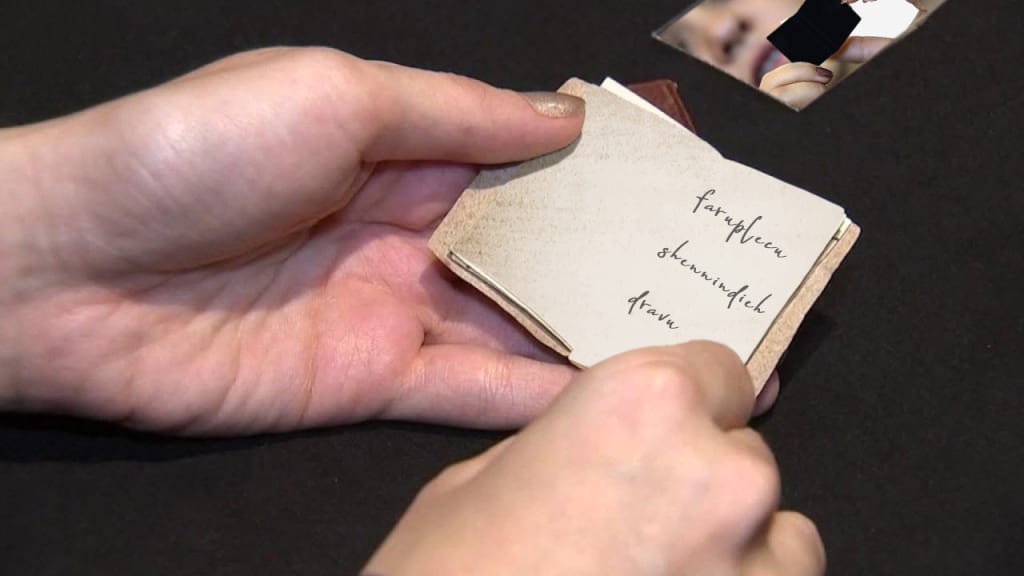 farupleen
shennindich
dravu